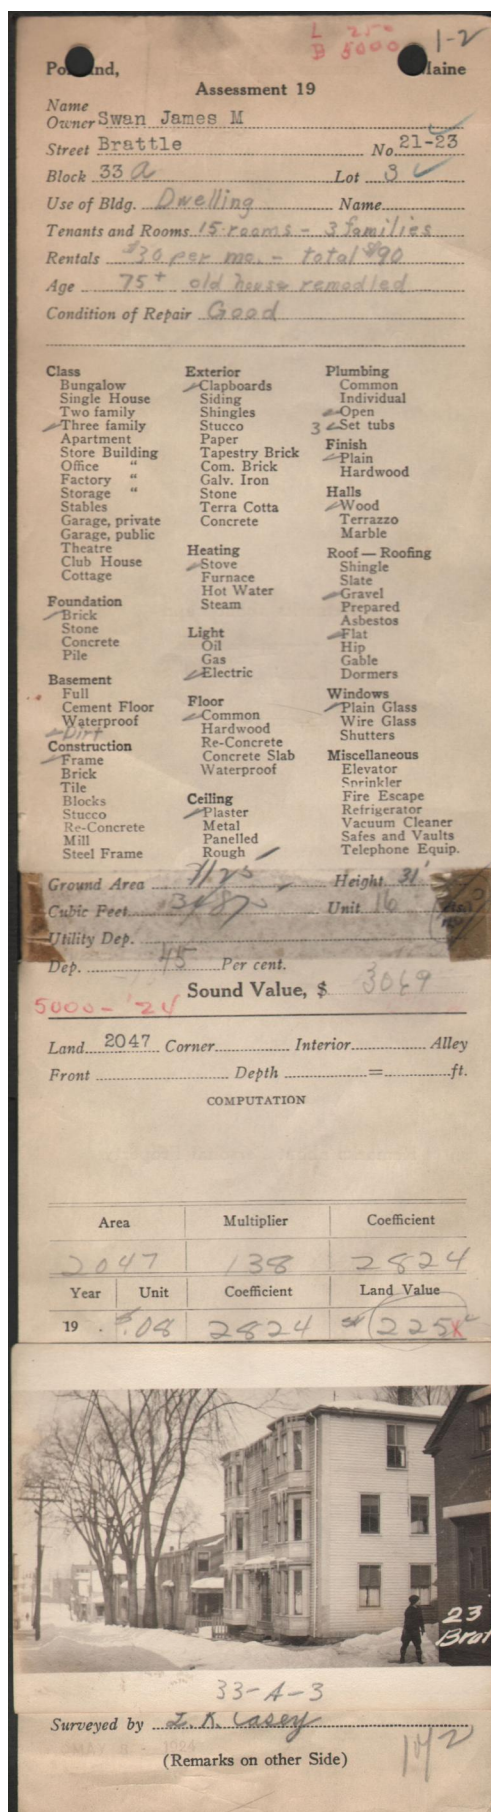 L 250
B 5000
1-2
Portland, Maine
Assessment 19
Name
Owner Swan James M
Street Brattle No. 21-23
Block 33 A Lot 3
Use of Bldg. Dwelling Name
Tenants and Rooms 15 rooms - 3 families
Rentals $30 per mo. - total $90
Age 75+ old house remodled
Condition of Repair Good
Class
Bungalow
Single House
Two family
Three family
Apartment
Store Building
Office "
Factory "
Storage "
Stables
Garage, private
Garage, public
Theatre
Club House
Cottage
Foundation
Brick
Stone
Concrete
Pile
Basement
Full
Cement Floor
Waterproof
Dirt
Construction
Frame
Brick
Tile
Blocks
Stucco
Re-Concrete
Mill
Steel Frame
Exterior
Clapboards
Siding
Shingles
Stucco
Paper
Tapestry Brick
Com. Brick
Galv. Iron
Stone
Terra Cotta
Concrete
Heating
Stove
Furnace
Hot Water
Steam
Light
Oil
Gas
Electric
Floor
Common
Hardwood
Re-Concrete
Concrete Slab
Waterproof
Ceiling
Plaster
Metal
Panelled
Rough
Plumbing
Common
Individual
Open
3 Set tubs
Finish
Plain
Hardwood
Halls
Wood
Terrazzo
Marble
Roof — Roofing
Shingle
Slate
Gravel
Prepared
Asbestos
Flat
Hip
Gable
Dormers
Windows
Plain Glass
Wire Glass
Shutters
Miscellaneous
Elevator
Sprinkler
Fire Escape
Refrigerator
Vacuum Cleaner
Safes and Vaults
Telephone Equip.
Ground Area 1125 Height 31'
Cubic Feet 34875 Unit 16
Utility Dep.
Dep. 45 Per cent.
Sound Value, $ 3069
5000 - '24
Land 2047 Corner Interior Alley
Front Depth = ft.
COMPUTATION
Area Multiplier Coefficient
2047 138 2824
Year Unit Coefficient Land Value
19 $.08 2824 $225
23
Brat
33-A-3
Surveyed by I. K. Casey
(Remarks on other Side)